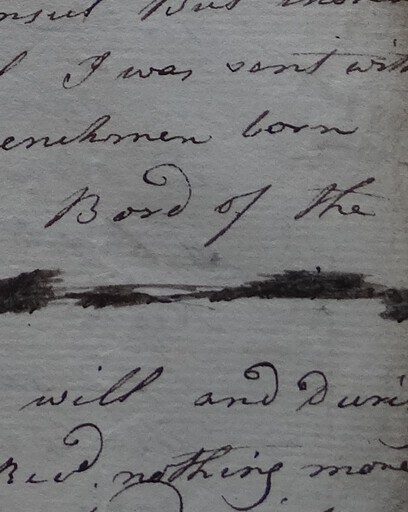 I was sent with
enchmen born
Bord of the
will and Duri
Recd. nothing more